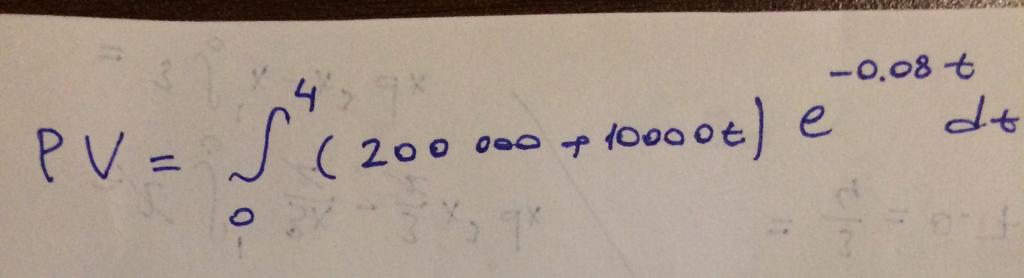 PV = ∫₀⁴ (200 000 + 10000t) e^{-0.08t} dt